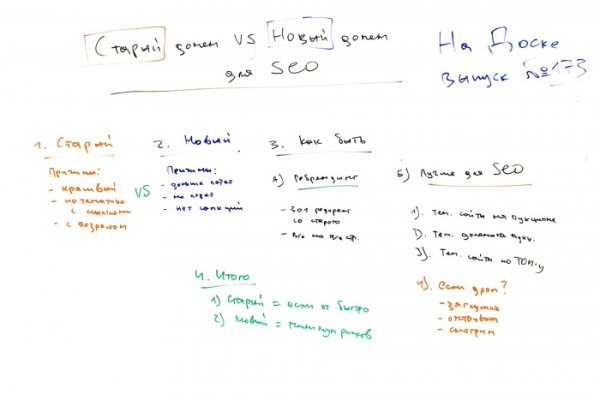 Старый домен VS Новый домен
для SEO
На Доске
выпуск №173
1. Старый
Причины:
- красивый
- по тематике
с ссылками
- с возрастом
VS
2. Новый
Причины:
- дольше
- не
- нет санкций
3. Как быть
А) Ребрендинг
- 301 редирект
со старого
- Все на все стр.
Б) Лучше для SEO
1). Тем. сайты на аукционе
2). Тем. домены
3). Тем. сайты по ТОП-у
4). Если дроп?
- заглушка
- отстаивать
- смотрим
4. Итого
1) Старый = если ок быстро
2) Новый = минимум рисков